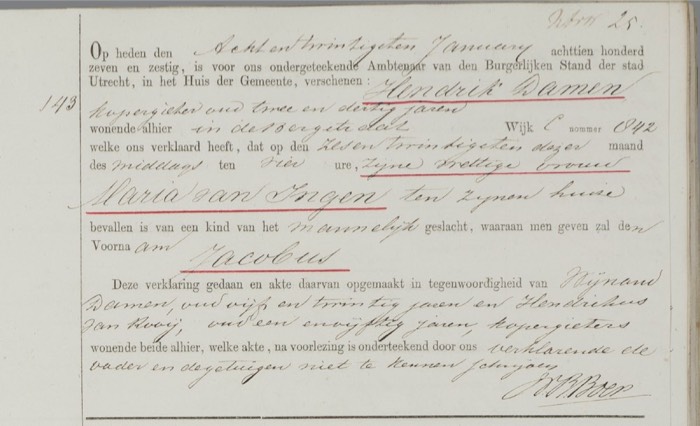 25.
Op heden den Acht en twintigsten January achttien honderd
zeven en zestig, is voor ons ondergeteekende Ambtenaar van den Burgerlijken Stand der stad
Utrecht, in het Huis der Gemeente, verschenen: Hendrik Damen
143
kopergieter oud twee en dertig jaren
wonende alhier in de Bergstraat Wijk C nommer 842
welke ons verklaard heeft, dat op den Zesentwintigsten dezer maand
des middags ten vier ure, zyne wettige vrouw
Maria van Ingen ten zynen huize
bevallen is van een kind van het mannelijk geslacht, waaraan men geven zal den
Voorna am
Jacobus
Deze verklaring gedaan en akte daarvan opgemaakt in tegenwoordigheid van Wijnand
Damen, oud vijf en twintig jaren en Hendrikus
van Rooij, oud een en vijftig jaren, kopergieters
wonende beide alhier, welke akte, na voorlezing is onderteekend door ons verklarende de
vader en de getuigen niet te kennen schrijven